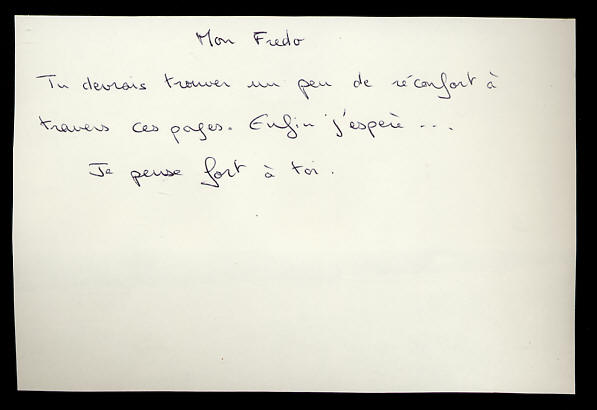 Mon Fredo
Tu devrais trouver un peu de réconfort à
travers ces pages. Enfin j'espère ...
Je pense fort à toi.